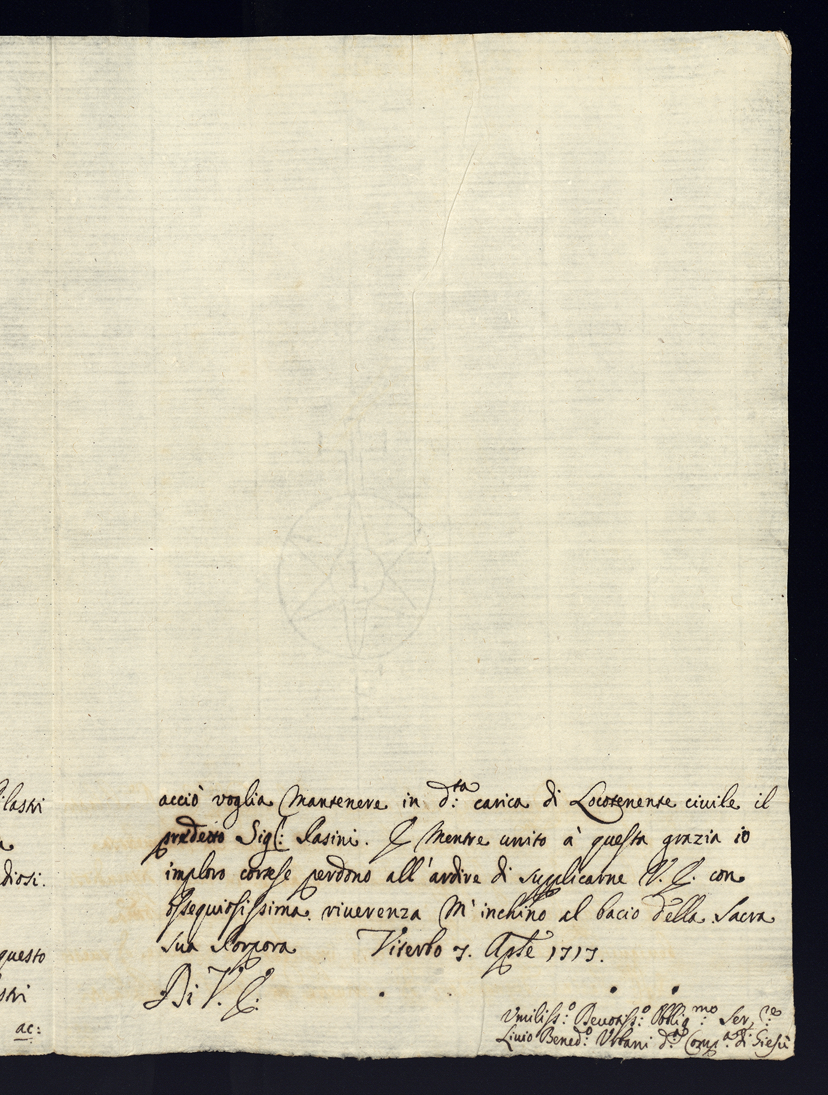 lastri
diosi.
questo
stri
ac:
acciò voglia Mantenere in d:ta carica di Locotenente civile il
predetto Sig: Rasini. E Mentre unito à questa grazia io
imploro cortese perdono all'ardire di supplicarne V. E. con
ossequiosissima riverenza M'inchino al bacio della Sacra
Sua Porpora Viterbo 7. Aple 1717.
Di V. E.
Umiliss:o Devotiss:o Obblig:mo Ser:re
Livio Bened:o Urbani d:a Comp:a di Giesù